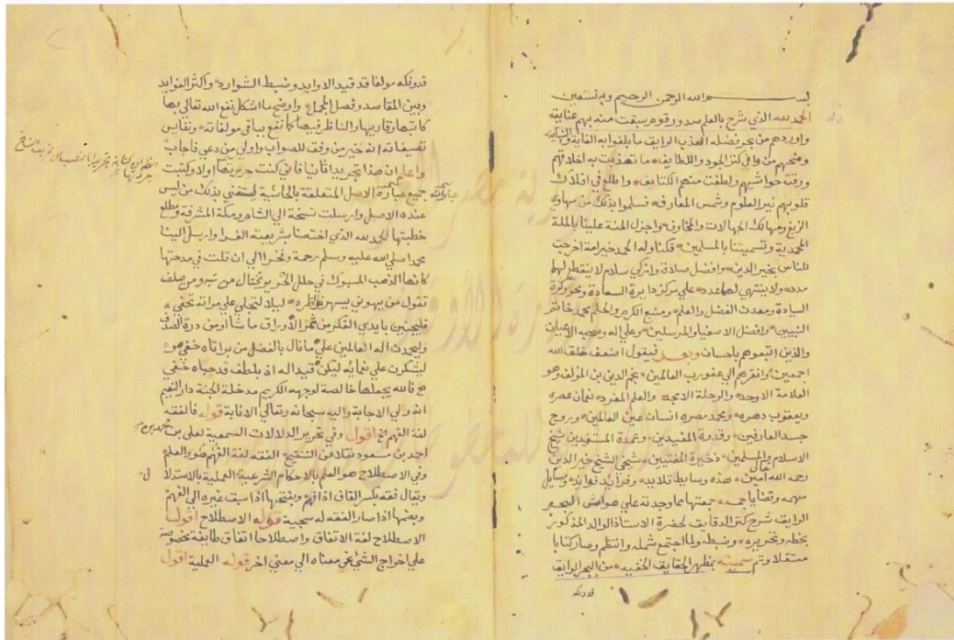 بسم الله الرحمن الرحيم وبه نستعين
الحمد لله الذي شرح بالعلم صدور قوم سبقت منه بهم عنايته
واوردهم من بحر فضله العذب الرايق ما بلغوا به الغاية والنهاية
ومنحهم من وافي كنز الجود واللطايف ما تهذبت به اخلاقهم
ورقت حواشيهم ولطفت منهم الكثايف واطلع في افلاك
قلوبهم نير العلوم وشمس المعارف فسلموا بذلك من مهاوي
الزيغ ومهالك الجهالات والمخاوف واجزل المنة علينا بالملة
المحمدية وتسميتنا بالمسلمين فكنا وله الحمد خير امة اخرجت
للناس بخير الدين وافضل صلاة وازكي سلام لا ينقطع لهما
مدد ولا ينتهي لهما عدد علي مركز دايرة السعادة ومحور كرة
السيادة ومعدن الفضل والعلم ومنبع الكرم والحلم محمد خاتم
النبيين وافضل الاصفيا والمرسلين وعلي اله وصحبه الاعيان
والذين اتبعوهم باحسان وبعد فيقول اضعف خلق الله
اجمعين وافقرهم الي عفو رب العالمين نجم الدين بن المؤلف وهو
العلامة الاوحد والرحلة الامجد والعلم المفرد نعمان عصره
ويعقوب دهره ومحمد مصره انسان عين العالمين وروح
جسد العارفين وقدوة المفيدين وعمدة المستفيدين شيخ
الاسلام والمسلمين ذخيرة المفتيين شيخي الشيخ خير الدين
رحمه الله تعالي امين هذه وسايط قلايد وفرائد فوايد ومسايل
مهمه وقضايا جمه جمعتها مما وجدته علي هوامش البحر
الرايق شرح كنز الدقايق لحضرة الاستاذ الوالد المذكور
بخطه وتحريره وضبطه ولما اجتمع شمله وانتظم وصار كتابا
مستقلا وتم سميته بمظهر الحقايق الخفيه من البحر الرايق
فدونكه
فدونكه مولفا قد قيد الاوابد وضبط الشوارد واكثر الفوايد
وبين المقاصد وفصل المجمل واوضح ما اشكل نفع الله تعالي بها
كاتبها وقاريها والناظر فيها كما نفع بباقي مولفاته ونفايس
تصنيفاته انه خير من وفق للصواب واولي من دعي فاجاب
واعلم ان هذا تجريد ثانيا فاني كنت جردتها اولا وكتبت
جميع عبارة الاصل المتعلقة بالحاشية ليستغني بذلك من ليس
عنده الاصل وارسلت نسخة الي الشام ومكة المشرفة ومطلع
خطبتها الحمد لله الذي اختصنا بشريعته الغرا وارسل الينا
محمدا صلي الله عليه وسلم رحمة وفخرا الي ان قلت في مدحتها
كانها الذهب المسبوك في حلل الحرير تختال من تيه ومن صلف
تقول من يهوني يسهر نواظره ليلا لتجلي علي مراته تحفي
فليجنين بايدي الفكر من ثمر الاوراق ما شا او من درة الصدف
وليحمدن اله العالمين علي ما نال بالفضل من مراتاه خفي
ليشكرن علي نعمائه ليكن قيدا له اذ بلطف قد حباه خفي
فالله يجعلها خالصة لوجهه الكريم مدخلة الجنة دار النعيم
انه ولي الاجابة واليه سبحانه وتعالي الانابة قوله فالفقه
لغة الفهم الخ اقول وفي تحرير الدلالات السمعية لعلي بن محمد بن
احمد بن مسعود نقلا عن التنقيح الفقه لغة الفهم هو والعلم
وفي الاصطلاح هو العلم بالاحكام الشرعية العملية بالاستدلال
ويقال فقه بكسر القاف اذا فهم وبفتحها اذا سبق غيره الي الفهم
وبضمها اذا صار الفقه له سجية قوله الاصطلاح اقول
الاصطلاح لغة الاتفاق واصطلاحا اتفاق طايفة مخصوصة
علي اخراج الشي عن معناه الي معني اخر قوله العملية اقول